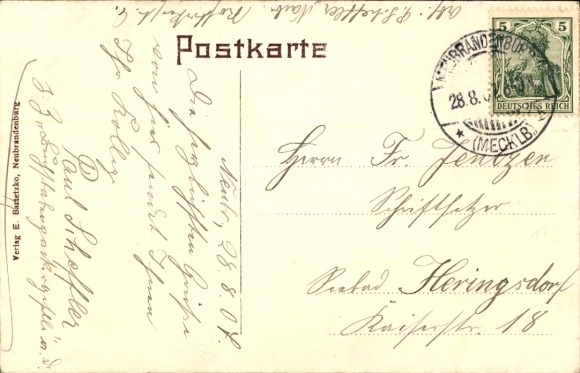 Abs.: P. Scheffler, Neub.
Postkarte
5
DEUTSCHES REICH
NEUBRANDENBURG
28.8.07
(MECKLB)
Neub., 28.8.07.
Die herzlichsten Grüße
von hier sendet Ihnen
Ihr Kollege
Paul Scheffler
Herrn Fr. Jentzen
Schriftsetzer
Seebad Heringsdorf
Kaiserstr. 18
Verlag E. Bartetzko, Neubrandenburg